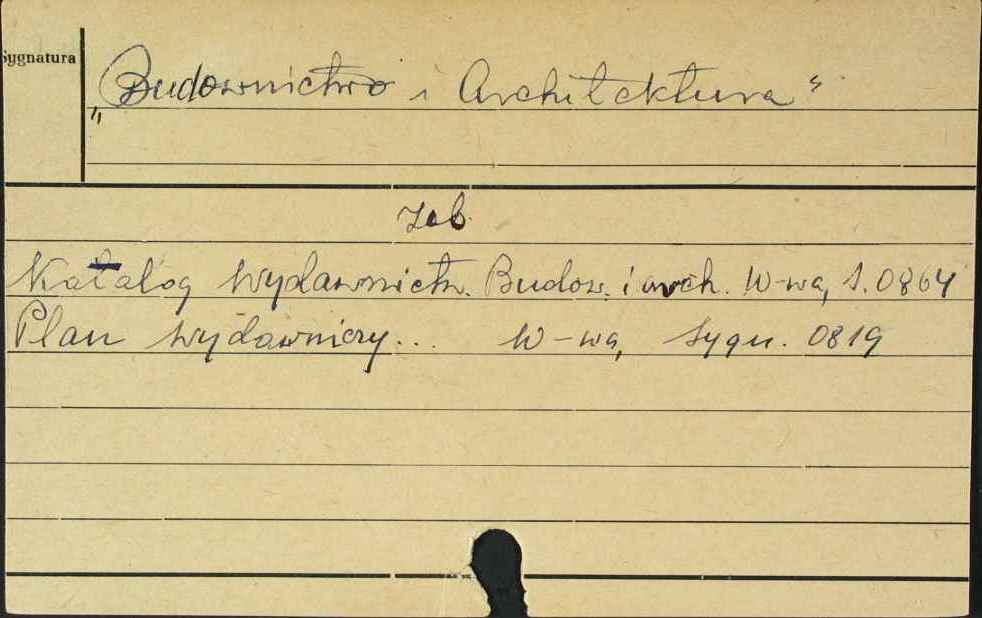 Sygnatura
„Budownictwo i Architektura"
zob.
Katalog Wydawnictw. Budow. i arch. W-wa, S. 0864
Plan wydawniczy... W-wa, Sygn. 0819